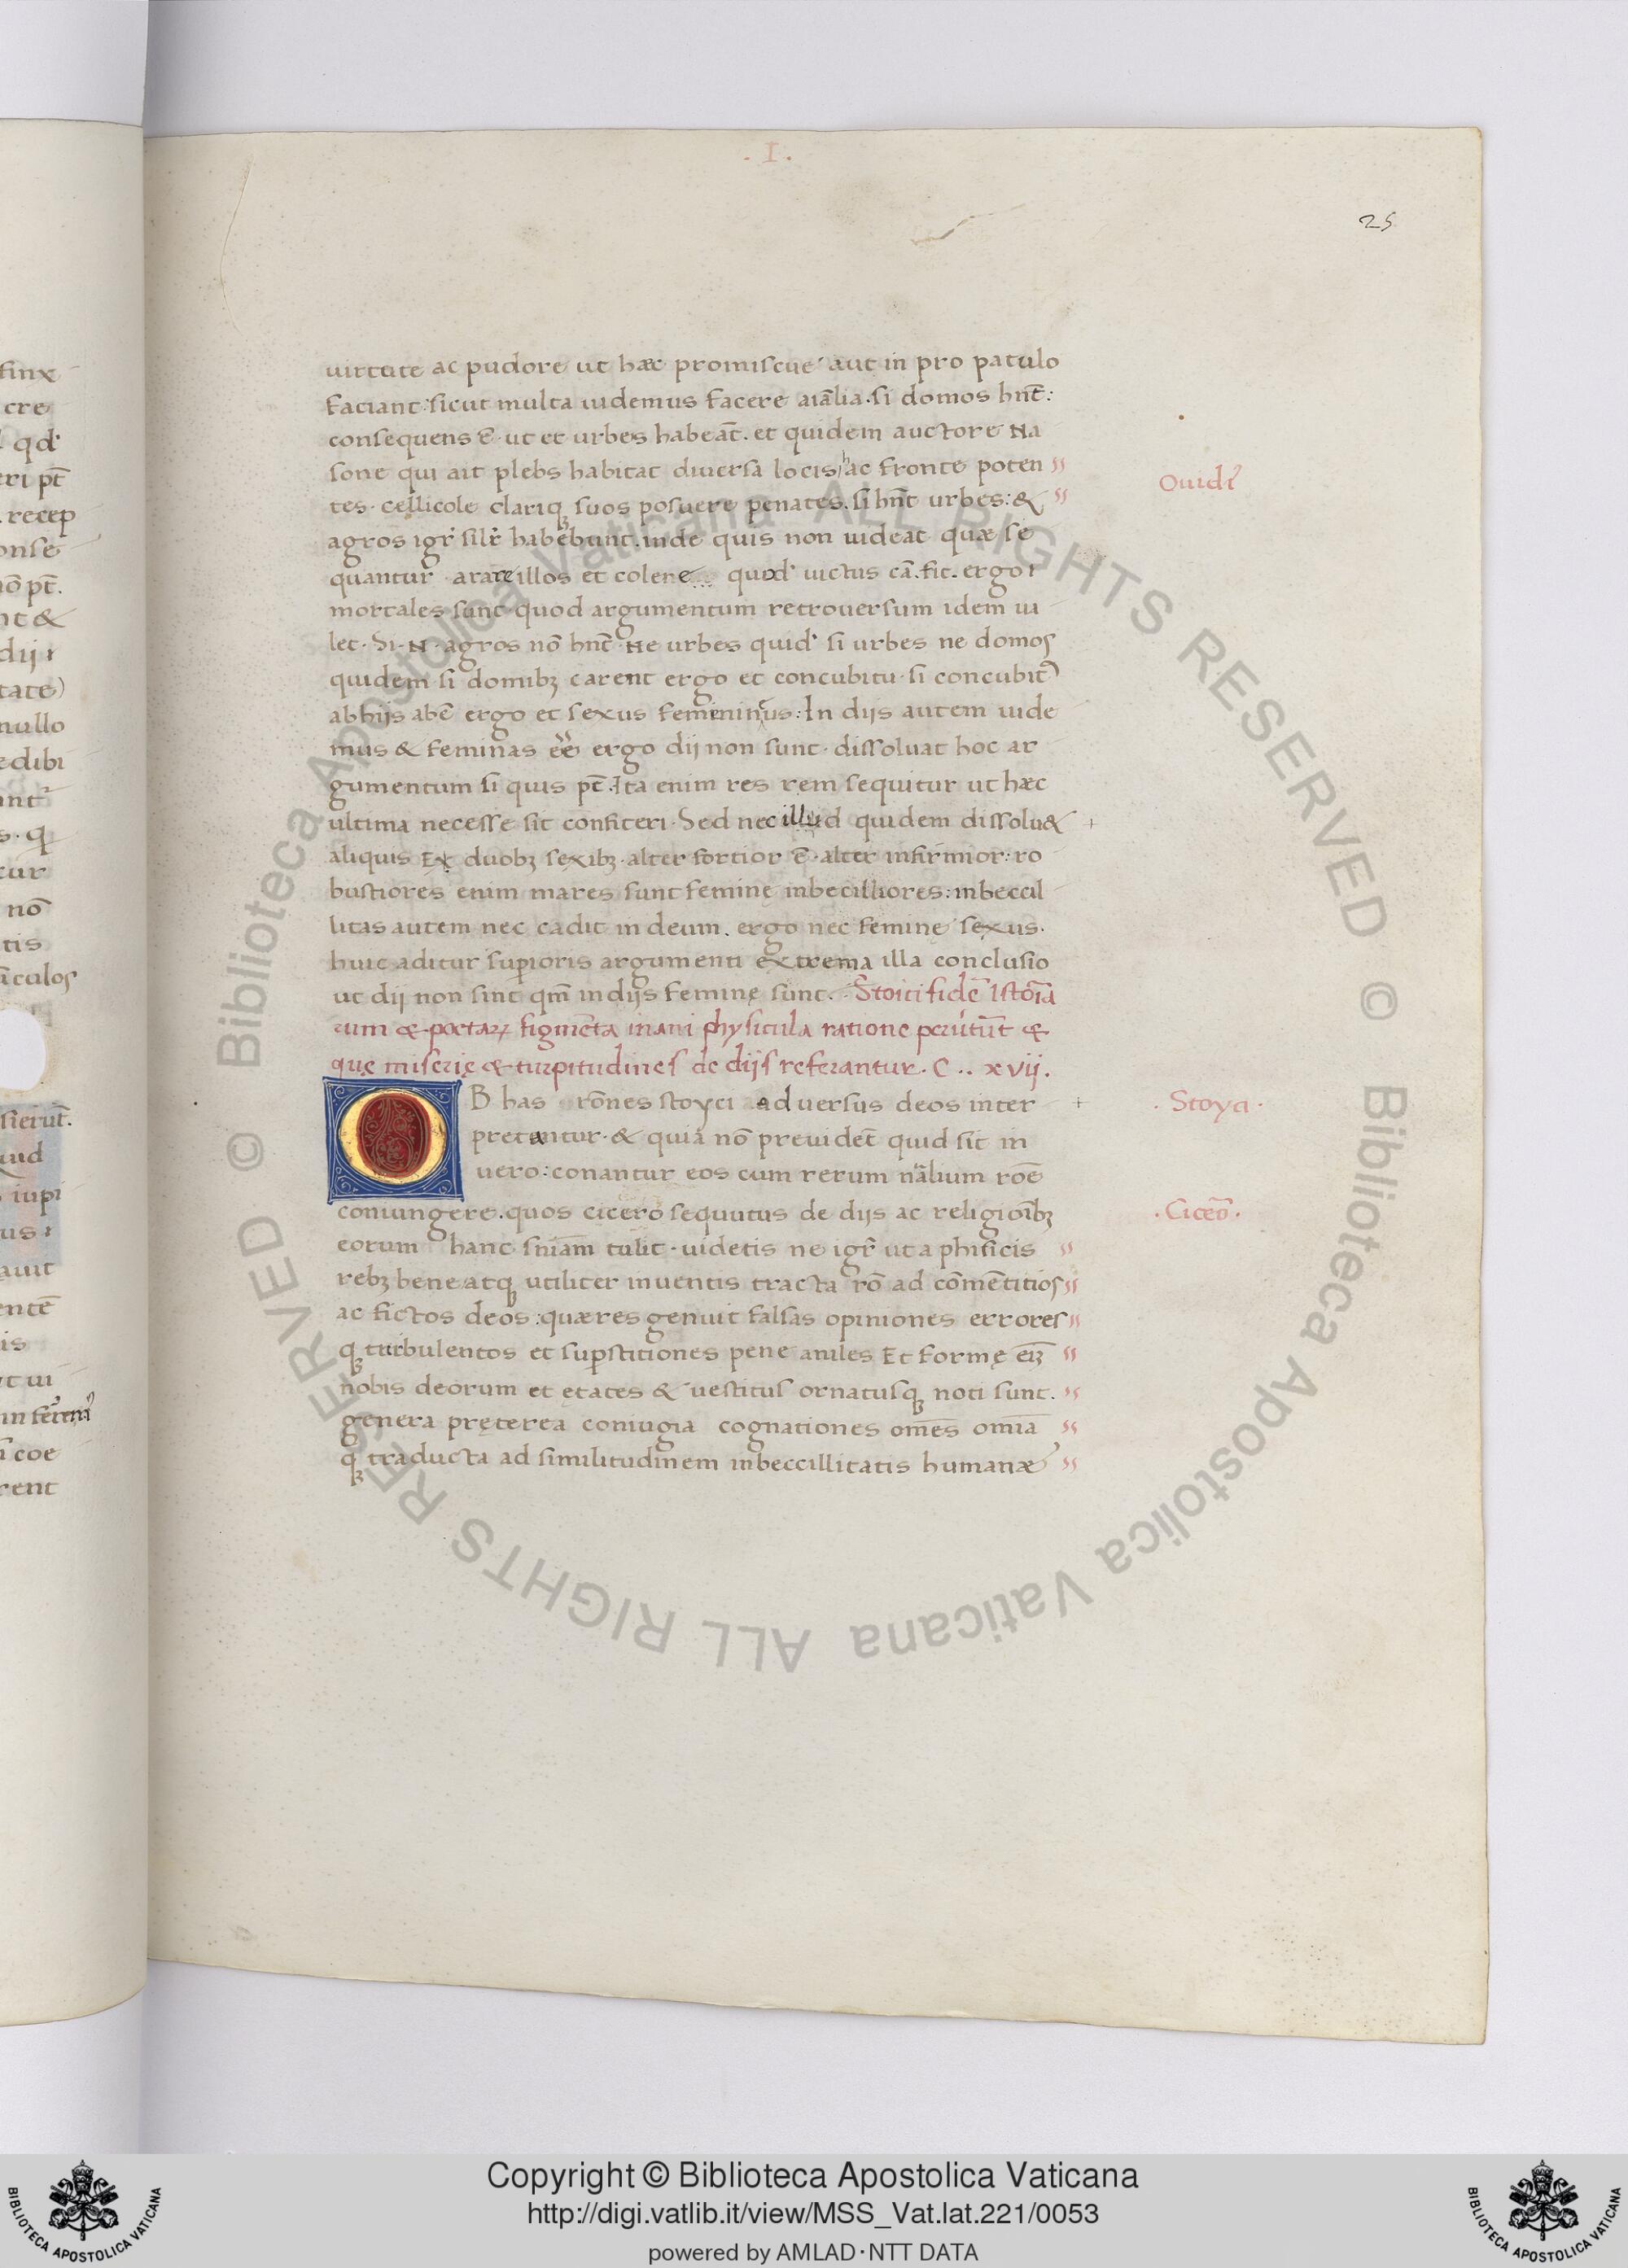 . I .
25
finx
cre
qd'
eri pt̄
. recep
onse
nō pt̄.
nt &
dij :
tate)
nullo
edibi
s. q
tur
nō
tis
iculos
sierūt.
iupi
us :
auit
entē
is
coe
rent
uirtute ac pudore ut hæc promiscue aut in pro patulo
faciant: sicut multa uidemus facere aiālia. si domos hn̄t:
consequens ē. ut et urbes habeāt. et quidem auctore Na
sone qui ait plebs habitat diuersa locis hac fronte poten
tes. cellicole clariq; suos posuere penates. si hn̄t urbes: &
agros igr̄ silr̄ habebunt. inde quis non uideat quæ se
quantur arare illos et colere quod uictus cā. fit. ergo
mortales sunt quod argumentum retrouersum idem ua
let. Si. N. agros nō hn̄t Ne urbes quid' si urbes ne domos
quidem si domib; carent ergo et concubitu. si concubit'
ab hijs abē ergo et sexus femininus: In dijs autem uide
mus & feminas eē ergo dij non sunt. dissoluat hoc ar
gumentum si quis pt̄. Ita enim res rem sequitur ut hæc
ultima necesse sit confiteri. Sed nec illud quidem dissolu&
aliquis Ex duob; sexib; alter fortior ē. alter infirmior: ro
bustiores enim mares sunt feminę inbecilliores: inbecil
litas autem nec cadit in deum. ergo nec feminę sexus.
huic aditur supioris argumenti extrema illa conclusio
ut dij non sint qm̄ in dijs feminę sunt. Stoici fidē Istoria
rum & poetarꝝ figmēta inani physicula ratione perūtūt &
quę miserię & turpitudines de dijs referantur. C .. xvij.
OB has rōnes stoyci aduersus deos inter
pretantur. & quia nō preuidēt quid sit in
uero: conantur eos cum rerum nālium roē
coniungere. quos cicero sequutus de dijs ac religioīb;
eorum hanc sniam tulit. uidetis ne igr̄ ut a phisicis
reb; bene atq; utiliter inuentis tracta rō ad cōmētitios
ac fictos deos: quæ res genuit falsas opiniones errores
q; turbulentos et supstitiones pene aniles Et formę eī
nobis deorum et ętates & uestitus ornatusq; noti sunt.
genera pręterea coniugia cognationes omēs omia
q; traducta ad similitudinem inbeccillitatis humanæ
Ouidi
. Stoya .
. Cicerō .
© Biblioteca Apostolica Vaticana ALL RIGHTS RESERVED © Biblioteca Apostolica Vaticana ALL RIGHTS RESERVED
BIBLIOTECA APOSTOLICA VATICANA
Copyright © Biblioteca Apostolica Vaticana
http://digi.vatlib.it/view/MSS_Vat.lat.221/0053
powered by AMLAD·NTT DATA
BIBLIOTECA APOSTOLICA VATICANA